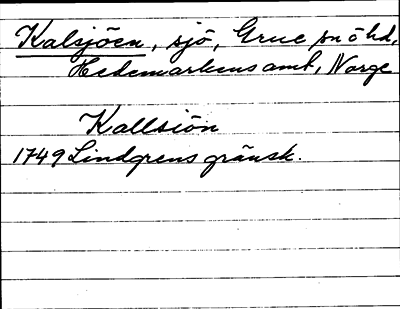 Kalsjöen, sjö, Grue snähd,
Hedemarkens amt, Norge
Kallsiön
1749 Lindgrens gränsk.